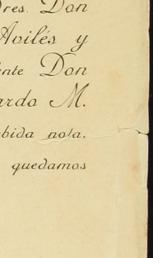 dres. Don
Avilés y
ente Don
ardo M.
bida nota.
quedamos